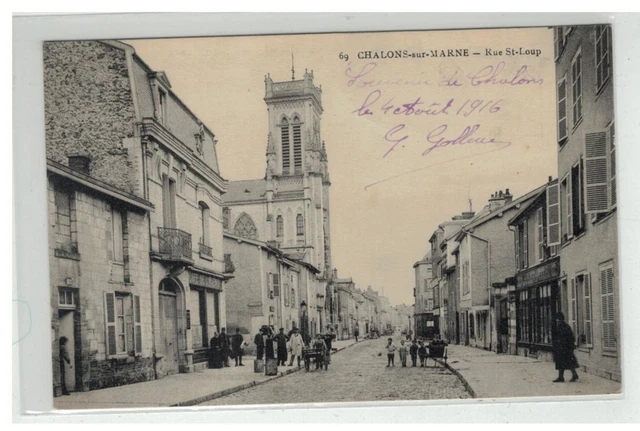 69 CHALONS-sur-MARNE — Rue St-Loup
Souvenir de Chalons
le 4 Août 1916
G.